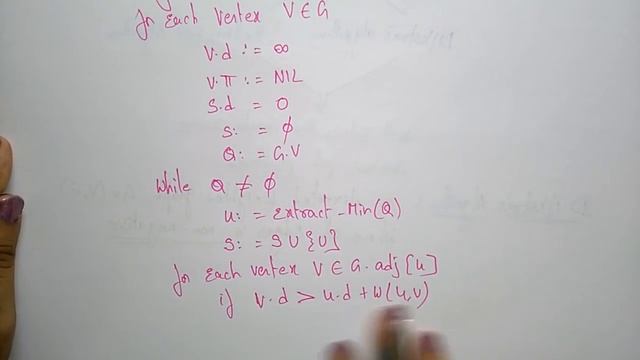 for each vertex V ∈ G
V.d := ∞
V.π := NIL
S.d = 0
S: = ϕ
Q: = G.V
While Q ≠ ϕ
u: = Extract-Min(Q)
S: = S ∪ {U}
for each vertex V ∈ G.adj[u]
if V.d > u.d + W(u,v)